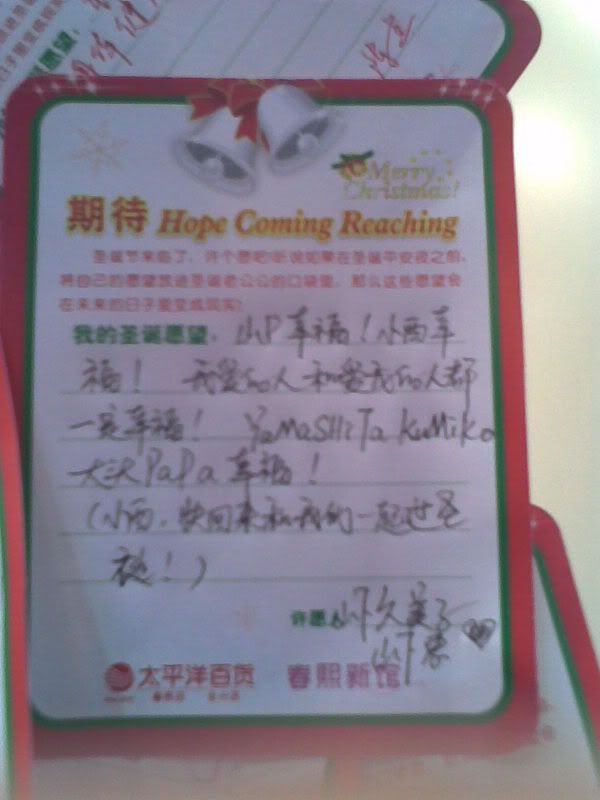 Merry
Christmas!
期待 Hope Coming Reaching
圣诞节来临了，许个愿吧!听说如果在圣诞平安夜之前，
将自己的愿望放进圣诞老公公的口袋里，那么这些愿望会
在未来的日子里变成现实!
我的圣诞愿望：山P幸福！小西幸
福！ 我爱的人和爱我的人都
一定幸福！ YaMaSHiTa KuMiKo
PaPa幸福！
（小西，快回来和我们一起过圣
诞！）
许愿人 山下久美子
山下
太平洋百货 春熙新馆